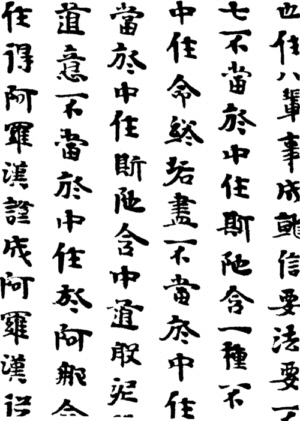 也住八輩事成就信要法要
七不當於中住斯陀含一種不
中住命終垢盡不當於中住
當於中住斯陀含中道般泥
道意不當於中住於阿那含
住得阿羅漢證成阿羅漢